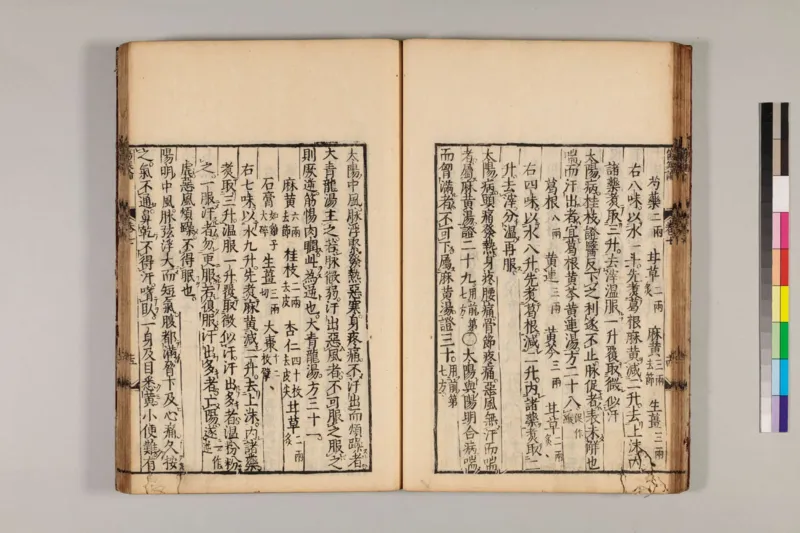 芍藥二兩 甘草炙二兩 麻黃去節三兩 生薑三兩
右八味以水一斗先煮葛根麻黃減二升去上沫內
諸藥煮取三升去滓溫服一升覆取微似汗
太陽病桂枝證醫反下之利遂不止脉促者表未解也
喘而汗出者宜葛根黃芩黃連湯方二十八
葛根八兩 黃連三兩 黃芩三兩 甘草炙二兩
右四味以水八升先煮葛根減二升內諸藥煮取二
升去滓分溫再服
太陽病頭痛發熱身疼腰痛骨節疼痛惡風無汗而喘
者屬麻黃湯證二十九用前第七方〇太陽與陽明合病喘
而胷滿者不可下屬麻黃湯證三十用前第七方
太陽中風脉浮緊發熱惡寒身疼痛不汗出而煩躁者
大青龍湯主之若脉微弱汗出惡風者不可服之服之
則厥逆筋惕肉瞤此為逆也大青龍湯方三十一
麻黃六兩去節 桂枝二兩去皮 杏仁四十枚去皮尖 甘草二兩炙
石膏如雞子大碎 生薑三兩切 大棗十二枚擘
右七味以水九升先煮麻黃減二升去上沫內諸藥
煮取三升溫服一升覆取微似汗汗出多者溫粉粉
之一服汗者勿更服若復服汗出多者亡陽遂一作
虛惡風煩躁不得眠也
陽明中風脉弦浮大而短氣腹都滿脅下及心痛久按
之氣不通鼻乾不得汗嗜臥一身及目悉黃小便難有